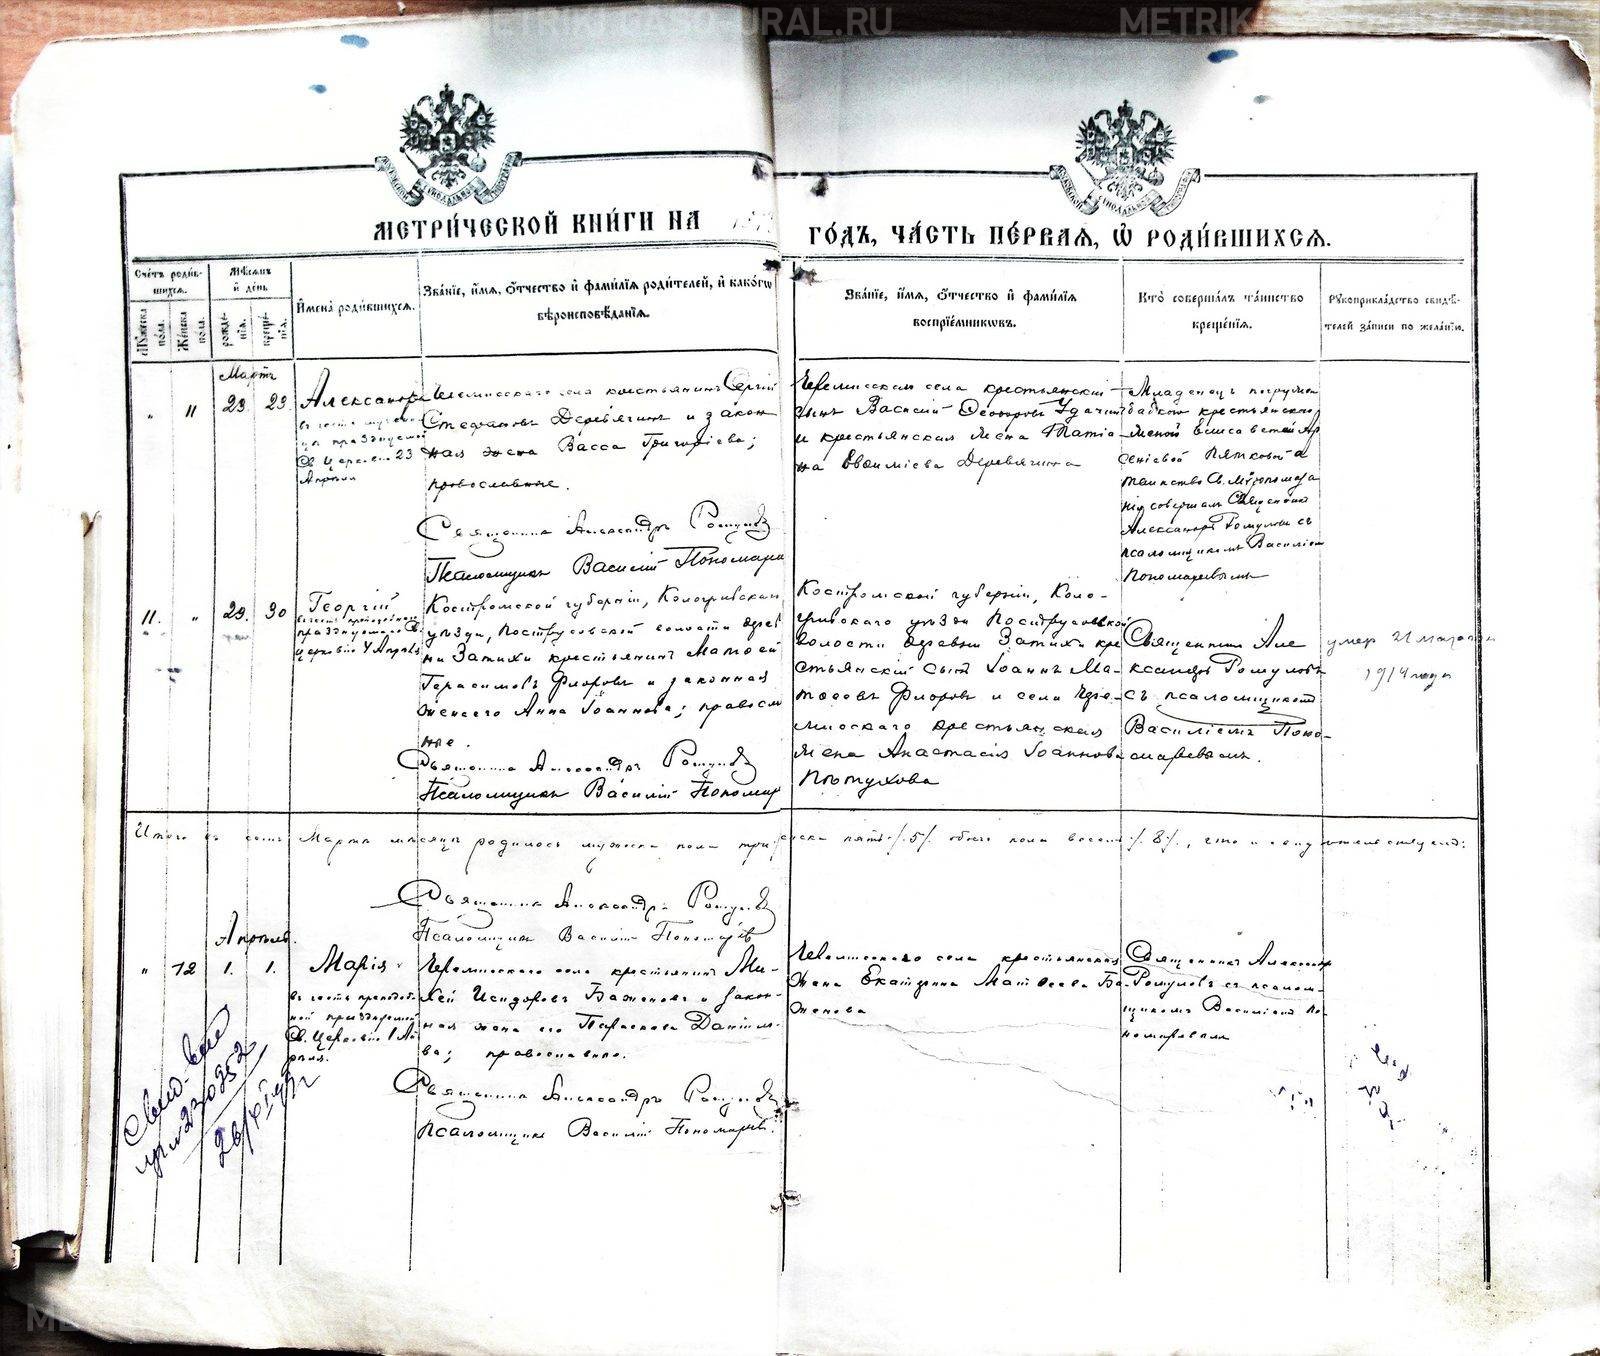 METRIKI.GASO-URAL.RU
METRIKI.GASO-URAL.RU
МЕТРИ́ЧЕСКОЙ КНИ́ГИ НА
ГО́ДЪ, ЧА́СТЬ ПЕ́РВАЯ, Ѡ҆ РОДИ́ВШИХСЯ.
Сче́тъ роди́вшихся.
Му́жеска по́ла.
Же́нска по́ла.
Мѣ́сяцъ и҆ де́нь
рожде́нїя.
креще́нїя.
И҆мена̀ роди́вшихся.
Зва́нїе, и҆́мя, ѻ҆́тчество и҆ фами́лїя роди́телей, и҆ како́гѡ
вѣроисповѣ́данїя.
Зва́нїе, и҆́мя, ѻ҆́тчество и҆ фами́лїя
воспрїе́мникѡвъ.
Кто̀ соверша́лъ та́инство
креще́нїя.
Рꙋкоприкла́дство свидѣ́-
телей за́писи по жела́нїю.
Мартъ
" 11 23. 23.
Александра
въ честь
празднуемой
Св. Церковію 23
Апрѣля
села крестьянинъ Сергій
Стефановъ Деревягинъ и закон
ная жена Васса Григоріева;
православные.
Священникъ Александръ Ромуловъ
Псаломщикъ Василій Пономарев
села крестьянскій
сынъ Василій Ѳеодоровъ
и крестьянская жена Татіа-
на Евѳиміева Деревягина
Младенецъ погружен
бабкою крестьянскою
женой Елисаветой Ар
сеніевой Пятковой а
таинство Св. Мѵропомаза
нія совершалъ Священникъ
Александръ Ромуловъ съ
псаломщикомъ Василіемъ
Пономаревымъ
11. " 29. 30
Георгій,
въ честь преподобнаго
празднуемаго Св.
Церковію 4 Апрѣля
Костромской губерніи, Кологривскаго
уѣзда, волости дерев
ни Затихи крестьянинъ Матѳей
Герасимовъ Флоровъ и законная
жена его Анна Іоаннова; православ
ные.
Священникъ Александръ Ромуловъ
Псаломщикъ Василій Пономар
Костромской губерніи, Коло-
гривскаго уѣзда
волости деревни Затихи кре
стьянскій сынъ Іоаннъ Ма-
тѳеевъ Флоровъ и села Чере-
мисскаго крестьянская
жена Анастасія Іоаннова
Пѣтухова
Священникъ Але
ксандръ Ромуловъ
съ псаломщикомъ
Василіемъ Поно-
маревымъ.
умер 21 
1914 года
Итого въ семъ Мартѣ мѣсяцѣ родилось мужеска пола три женска пять /.5/. обоего пола восемь /.8/., что и свидѣтельствуемъ:
Священникъ Александръ Ромуловъ
Псаломщикъ Василій Пономарев
Апрѣль.
" 12 1. 1.
Марія
въ честь преподоб
ной празднуемой
Св. Церковію 1 Ап
рѣля.
Черемисскаго села крестьянинъ Ми-
хей Исидоровъ Баженовъ и закон-
ная жена его Параскева Даніило-
ва; православные.
Священникъ Александръ Ромуловъ
Псаломщикъ Василій Пономарев.
Черемисскаго села крестьянская
жена Екатерина Матѳеева Ба-
женова
Священникъ Александръ
Ромуловъ съ псалом-
щикомъ Василіемъ По-
номаревымъ